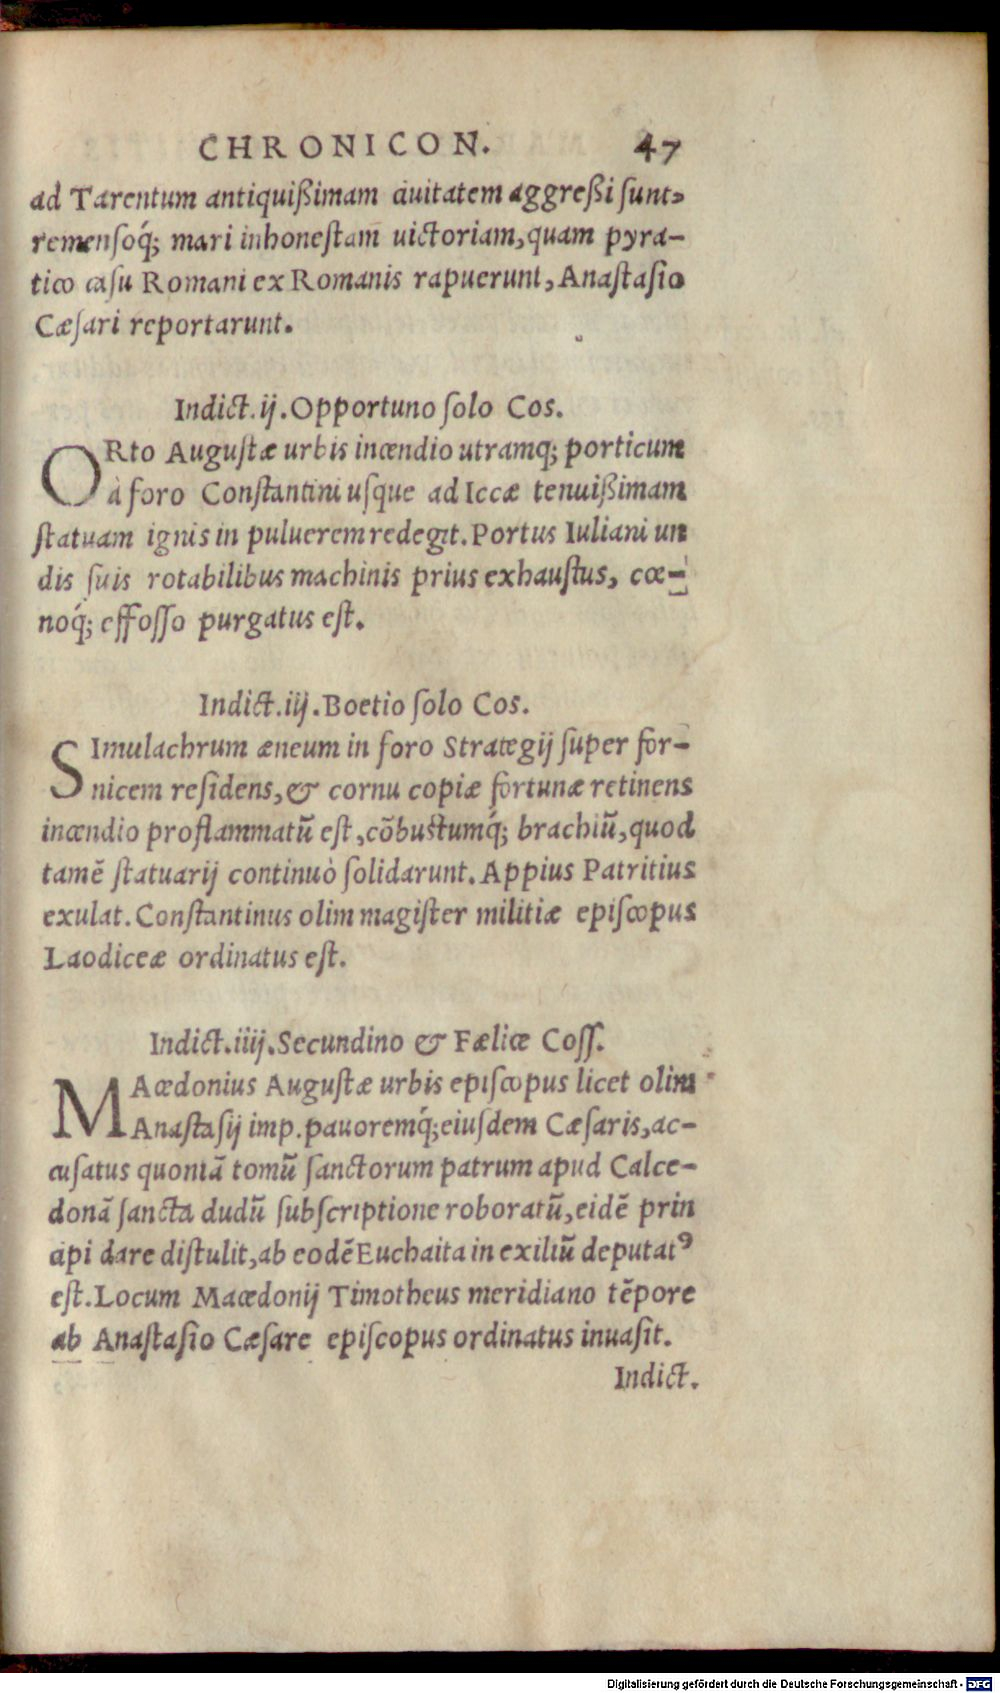 CHRONICON. 47
ad Tarentum antiquißimam ciuitatem aggreßi sunt,
remensoq́; mari inhonestam uictoriam, quam pyra-
tico casu Romani ex Romanis rapuerunt, Anastasio
Cæsari reportarunt.
Indict. ij. Opportuno solo Cos.
ORto Augustæ urbis incendio utramq; porticum
à foro Constantini usque ad Iccæ tenuißimam
statuam ignis in puluerem redegit. Portus Iuliani un
dis suis rotabilibus machinis prius exhaustus, cœ-
noq́; effosso purgatus est.
Indict. iij. Boetio solo Cos.
SImulachrum æneum in foro Strategij super for-
nicem residens, & cornu copiæ fortunæ retinens
incendio proflammatũ est, cõbustumq́; brachiũ, quod
tamẽ statuarij continuò solidarunt. Appius Patritius
exulat. Constantinus olim magister militiæ episcopus
Laodiceæ ordinatus est.
Indict. iiij. Secundino & Fælice Coss.
MAcedonius Augustæ urbis episcopus licet olim
Anastasij imp. pauoremq́; eiusdem Cæsaris, ac-
cusatus quoniã tomũ sanctorum patrum apud Calce-
donã sancta dudũ subscriptione roboratũ, eidẽ prin
cipi dare distulit, ab eodẽ Euchaita in exiliũ deputatꝰ
est. Locum Macedonij Timotheus meridiano tẽpore
ab Anastasio Cæsare episcopus ordinatus inuasit.
Indict.
Digitalisierung gefördert durch die Deutsche Forschungsgemeinschaft - DFG